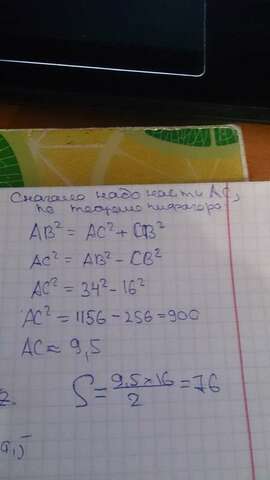 Сначало надо найти АС,
по теореме пифагора
AB² = AC² + CB²
AC² = AB² - CB²
AC² = 34² - 16²
AC² = 1156 - 256 = 900
AC ≈ 9,5
S = 9,5 × 16 / 2 = 76
2.
a,)